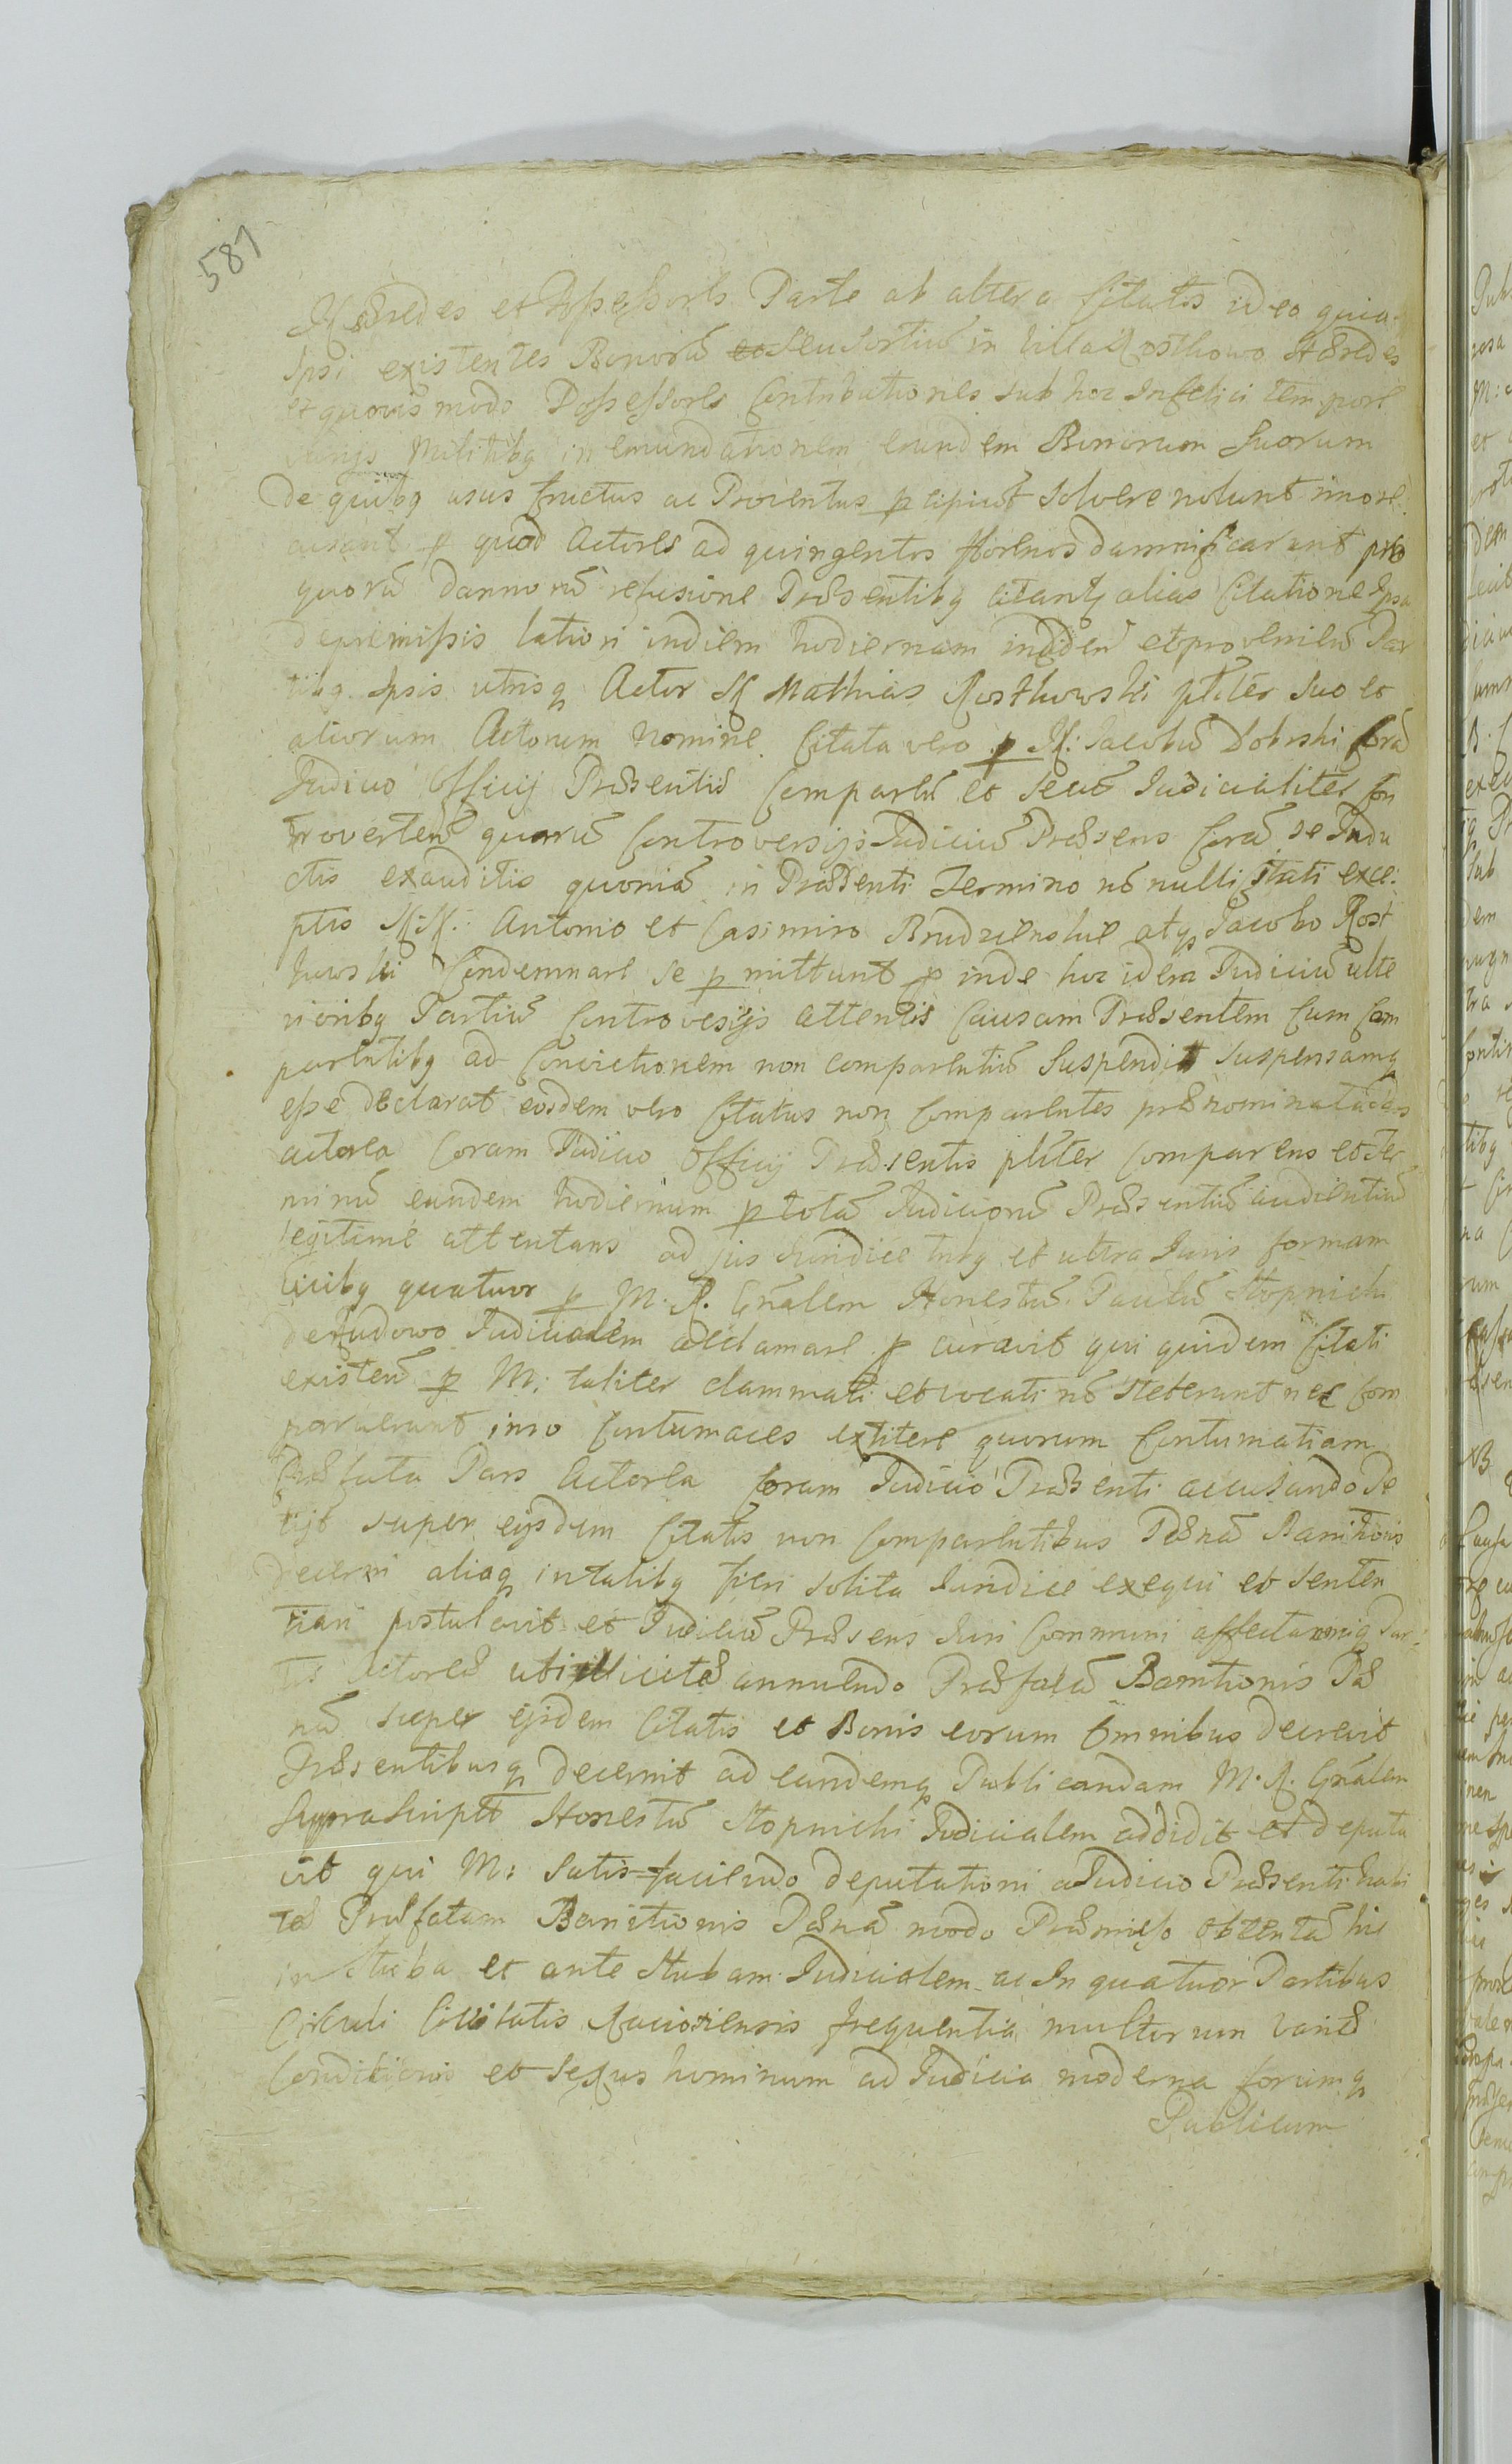 581
Hæredes et Possessores Parte ab altera Citatos ideo quia
Ipsi existentes Bonorū et seu Sortiū in Villa Rosthowo Hæredes
et quovis modo Possessores Contributiones sub hoc Infelici tempore
Militibq in emundationem eorundem Bonorum Suorum
de quibq usus fructus ac Proventus p cipiūt Solvere nolunt imo re
cusant p quod Actores ad quingentos florenos damnificarunt pro
quorū damnorū refusione Præsentibq citantq alias Citatione Ipsa
de præmissis latiori in diem hodiernam inciden et provenien Par
tibq Ipsis utrisq Actor M Mathias Rosthowski pliter suo et
aliorum Actorum Nomine Citata vero p M: Jacobū Dobrski Corā
Judicio Officij Præsentis Comparēn et secū Judicialiter Con
troverten quorū Controversijs Judiciū Præsens Corā se Indu
ctis exauditis quoniā in Præsenti Termino nō nulli Citati exce
ptis M.M: Antonio et Casimiro atq Jacobo Rost
howski Condemnare se p mittunt p inde hoc idem Judiciū ulte
rioribq Partiū Controvesijs attentis Causam Præsentem Cum Com
parentibq ad Convictionem non comparentiū Suspendit suspensamq
esse declarat eosdem vero Citatos non Comparentes prænominata Pars
actorea Coram Judicio Officij Præsentis pliter Comparens et Ter
minū eundem hodiernum p totā Judiciorū Præsentiū audientiā
legitime attentans ad jus Juridice tribq et ultra Juris formam
vicibq quatuor p M. R. Gñalem Honestū Paulū Stopnicki
de Judicialem acclamare p curavit qui quidem Citati
existen p M: taliter clammati et vocati nō steterunt nec Com
paruerunt imo Contumaces extitere quorum Contumatiam
Præfata Pars Actorea Coram Judicio Præsenti accusando Pe
tijt super eijsdem Citatis non Comparentibus Pænā Banitionis
decerni aliaq in talibq fieri solita Juridice exequi et senten
tiari postulavit et Judiciū Præsens Juri Communi affectationiq Par
tis Actoreæ uti licitæ annuendo Præfatā Banitionis Pæ
nā super eijsdem Citatis et Bonis eorum Omnibus decrevit
Præsentibusq decernit ad eandemq Publicandam M. R. Gñalem
Suprascriptū Honestū Stopnicki Judicialem addidit et deputa
vit qui M: Satis-faciendo deputationi a Judicio Præsenti habi
tæ Præfatam Banitionis Pænā modo Præmisso obtentā hic
in Stuba et ante Stubam Judicialem ac In quatuor Partibus
Circuli Civitatis Raciozensis frequentia multorum variæ
Conditionis et Sexus hominum ad Judicia moderna forumq
Publicum